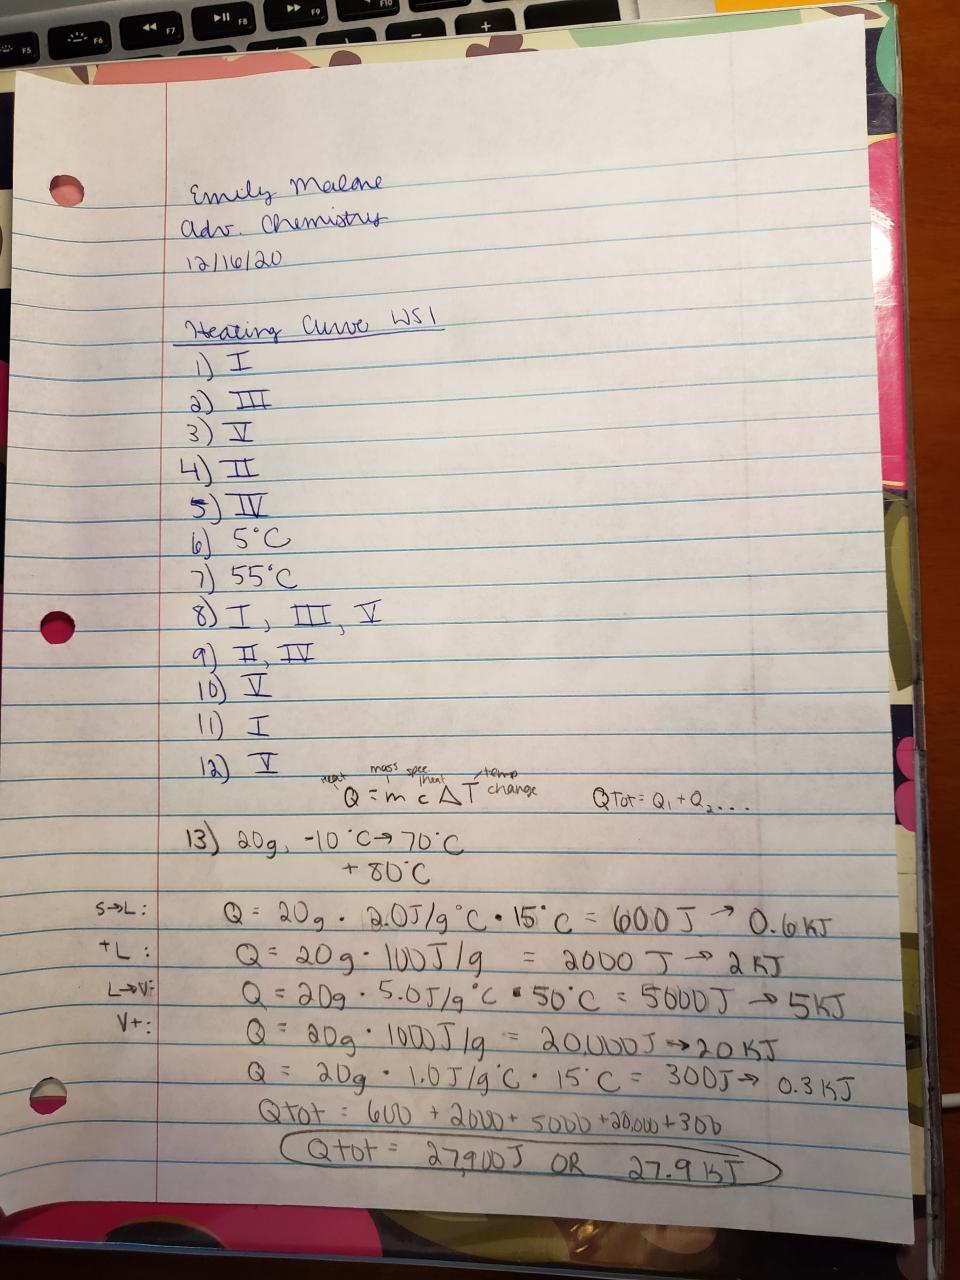 F5 F6 F7 F8 F9 F10
Emily Malone
Adv. Chemistry
12/16/20
Heating Curve WS1
1) I
2) III
3) V
4) II
5) IV
6) 5°C
7) 55°C
8) I, III, V
9) II, IV
10) V
11) I
12) V
heat mass spec. heat temp change
Q = m c ΔT QTot = Q₁ + Q₂....
13) 20g, -10°C → 70°C
+ 80°C
S→L: Q = 20g · 2.0J/g°C · 15°C = 600J → 0.6KJ
+L: Q = 20g · 100J/g = 2000J → 2KJ
L→V: Q = 20g · 5.0J/g°C · 50°C = 5000J → 5KJ
V+: Q = 20g · 1000J/g = 20,000J → 20KJ
Q = 20g · 1.0J/g°C · 15°C = 300J → 0.3KJ
Qtot = 600 + 2000 + 5000 + 20,000 + 300
Qtot = 27,900J OR 27.9KJ